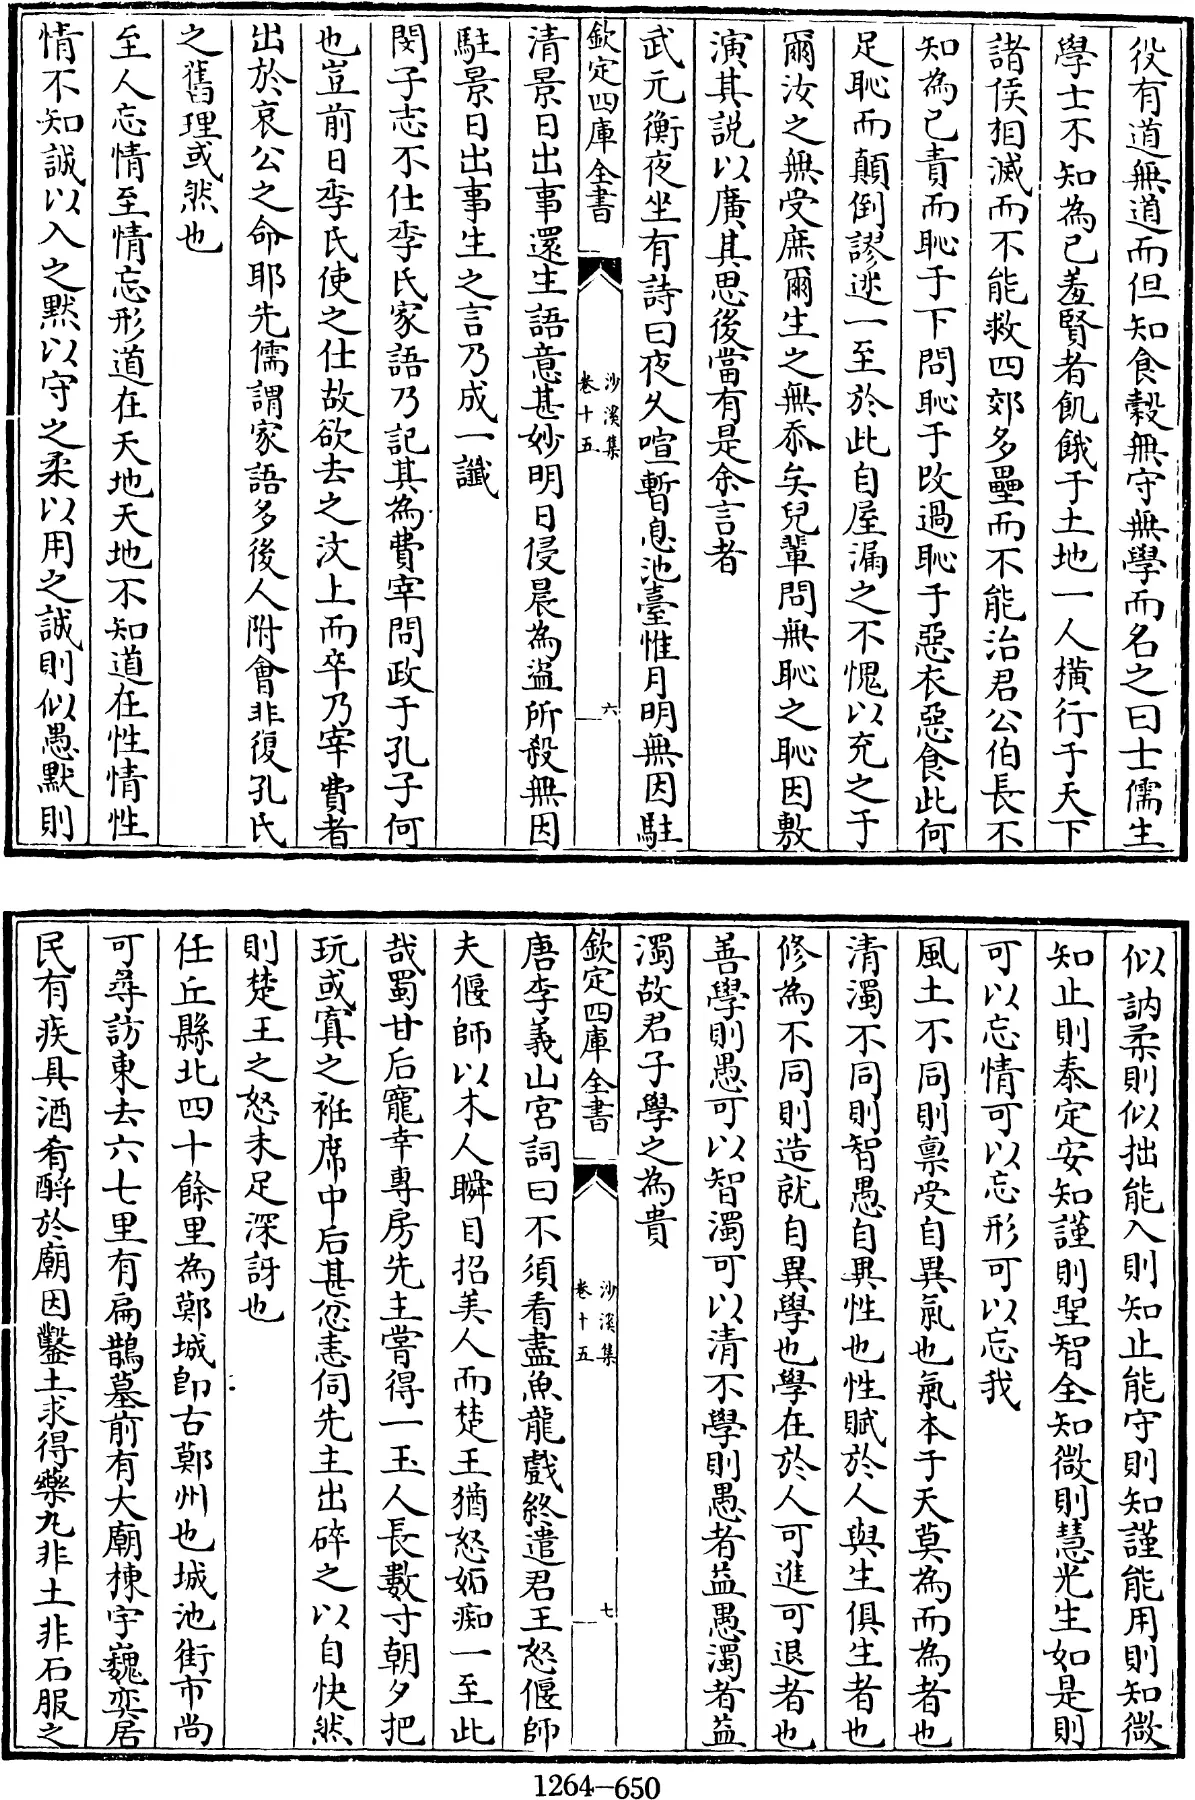 役有道無道而但知食穀無守無學而名之曰士儒生
學士不知為已羞賢者飢餓于土地一人橫行于天下
諸侯相滅而不能救四郊多壘而不能治君公伯長不
知為已責而恥于下問恥于改過恥于惡衣惡食此何
足恥而顛倒謬迷一至於此自屋漏之不愧以充之于
爾汝之無受庶爾生之無忝矣兒輩問無恥之恥因敷
演其說以廣其思後當有是余言者
武元衡夜坐有詩曰夜久喧暫息池臺惟月明無因駐
欽定四庫全書
沙溪集
卷十五
六
清景日出事還生語意甚妙明日侵晨為盜所殺無因
駐景日出事生之言乃成一讖
閔子志不仕季氏家語乃記其為費宰問政于孔子何
也豈前日季氏使之仕故欲去之汶上而卒乃宰費者
出於哀公之命耶先儒謂家語多後人附會非復孔氏
之舊理或然也
至人忘情至情忘形道在天地天地不知道在性情性
情不知誠以入之默以守之柔以用之誠則似愚默則
似訥柔則似拙能入則知止能守則知謹能用則知微
知止則泰定安知謹則聖智全知微則慧光生如是則
可以忘情可以忘形可以忘我
風土不同則稟受自異氣也氣本于天莫為而為者也
清濁不同則智愚自異性也性賦於人與生俱生者也
修為不同則造就自異學也學在於人可進可退者也
善學則愚可以智濁可以清不學則愚者益愚濁者益
濁故君子學之為貴
欽定四庫全書
沙溪集
卷十五
七
唐李義山宮詞曰不須看盡魚龍戲終遣君王怒偃師
夫偃師以木人瞬目招美人而楚王猶怒妬痴一至此
哉蜀甘后寵幸專房先主嘗得一玉人長數寸朝夕把
玩或寘之袵席中后甚忿恚伺先主出碎之以自快然
則楚王之怒未足深訝也
任丘縣北四十餘里為鄭城即古鄭州也城池街市尚
可尋訪東去六七里有扁鵲墓前有大廟棟宇巍奕居
民有疾具酒肴酹於廟因鑿土求得藥丸非土非石服之
1264-650